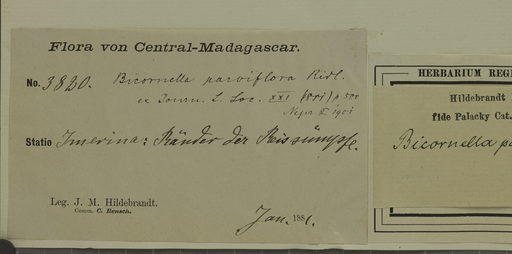 Flora von Central-Madagascar.
No. 3820. Bicornella parviflora Ridl.
ex Journ. L. Soc. XXI p 500
Statio Imerina: Ränder der Reissümpfe.
Leg. J. M. Hildebrandt.
Comm. C. Rensch.
Jan. 1881.
HERBARIUM REG
Hildebrandt
fide Palacky Cat.
Bicornella pa